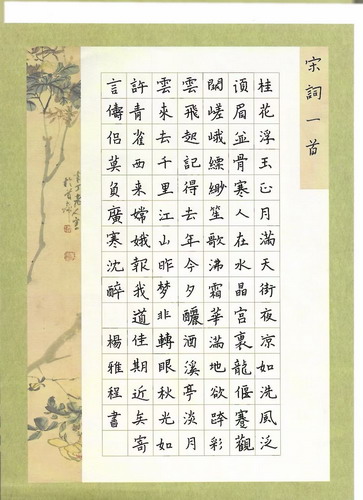 宋詞一首
桂花浮玉正月滿天街夜凉如洗風泛
須眉並骨寒人在水晶宮裏龍偃蹇觀
闕嵯峨縹緲笙歌沸霜華滿地欲跨彩
雲飛起記得去年今夕釃酒溪亭淡月
雲來去千里江山昨夢非轉眼秋光如
許青雀西来嫦娥報我道佳期近矣寄
言儔侶莫負廣寒沈醉 楊雅程書